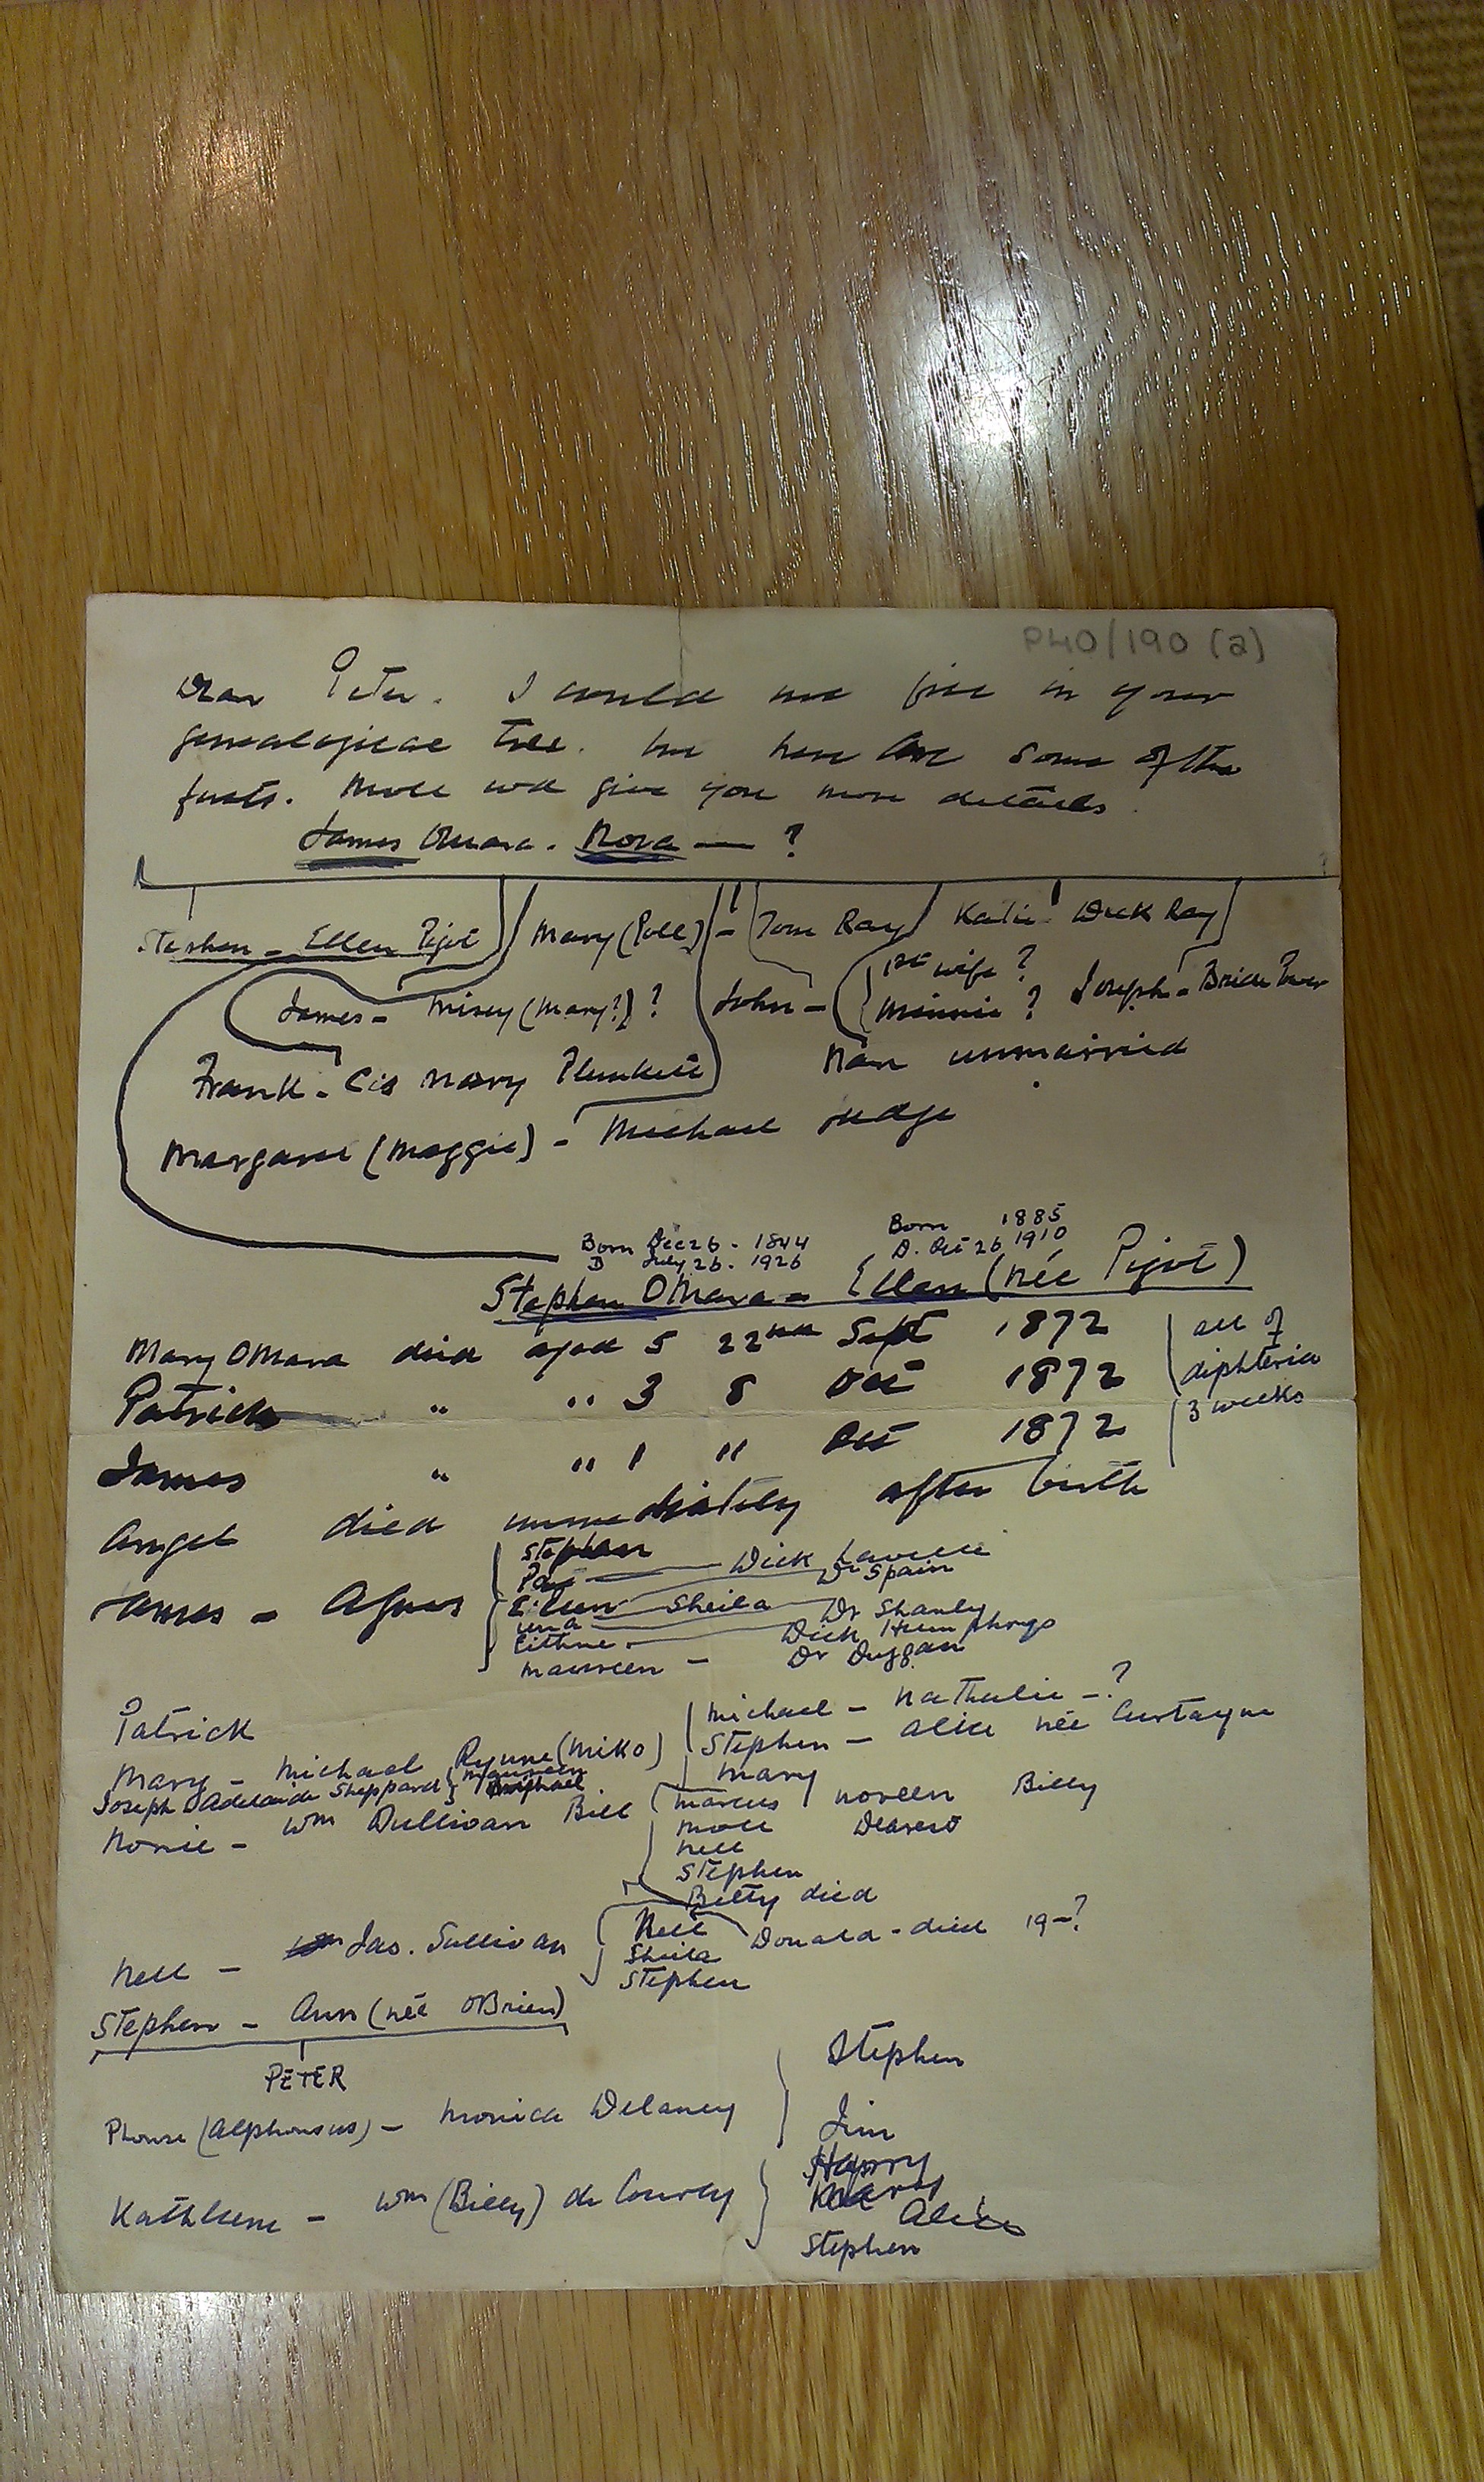 P40/190 (a)
Dear Peter. I could not fill in your
genealogical tree. but here are some of the
facts. Moll will give you more details.
James OMara. Nora — ?
Stephen - Ellen Pigot Mary (Poll) - Tom Ray Katie Dick Ray
James - Missy (Mary?) ? John - 1st wife ?
Minnie ? Joseph - Bride Power
Frank - Cis Mary Plunkett Nan unmarried
Margaret (Maggie) - Michael Judge
Born Dec 26 - 1844 Born 1885
D July 26 - 1926 D. Oct 26 1910
Stephen OMara - Ellen (née Pigot)
Mary OMara died aged 5 22nd Sept 1872 all of
Patrick " " 3 8 Oct 1872 diphteria
James " " 1 " Oct 1872 3 weeks
Angel died immediately after birth
James - Agnes
Stephen
Pat — Dick Lavelle
Eileen Sheila Dr Spain
Una Dr Shanley
Eithne - Dick Humphreys
Maureen - Dr Duggan
Patrick
Mary - Michael Rynne (Miko) Michael - Nathalie - ?
Stephen - Alice née Curtayne
Mary
Joseph Adelaide Sheppard Maureen
Nonie - Wm Sullivan Bill Marcus Noreen Billy
Moll
Nell
Stephen
Betty died
Nell - Jas. Sullivan Nell Donald - died 19-?
Sheila
Stephen
Stephen - Ann (née OBrien)
PETER
Phonse (Alphonsus) - Monica Delaney Stephen
Jim
Kathleene - Wm (Billy) de Courcy Harry
Mary
Alice
Stephen